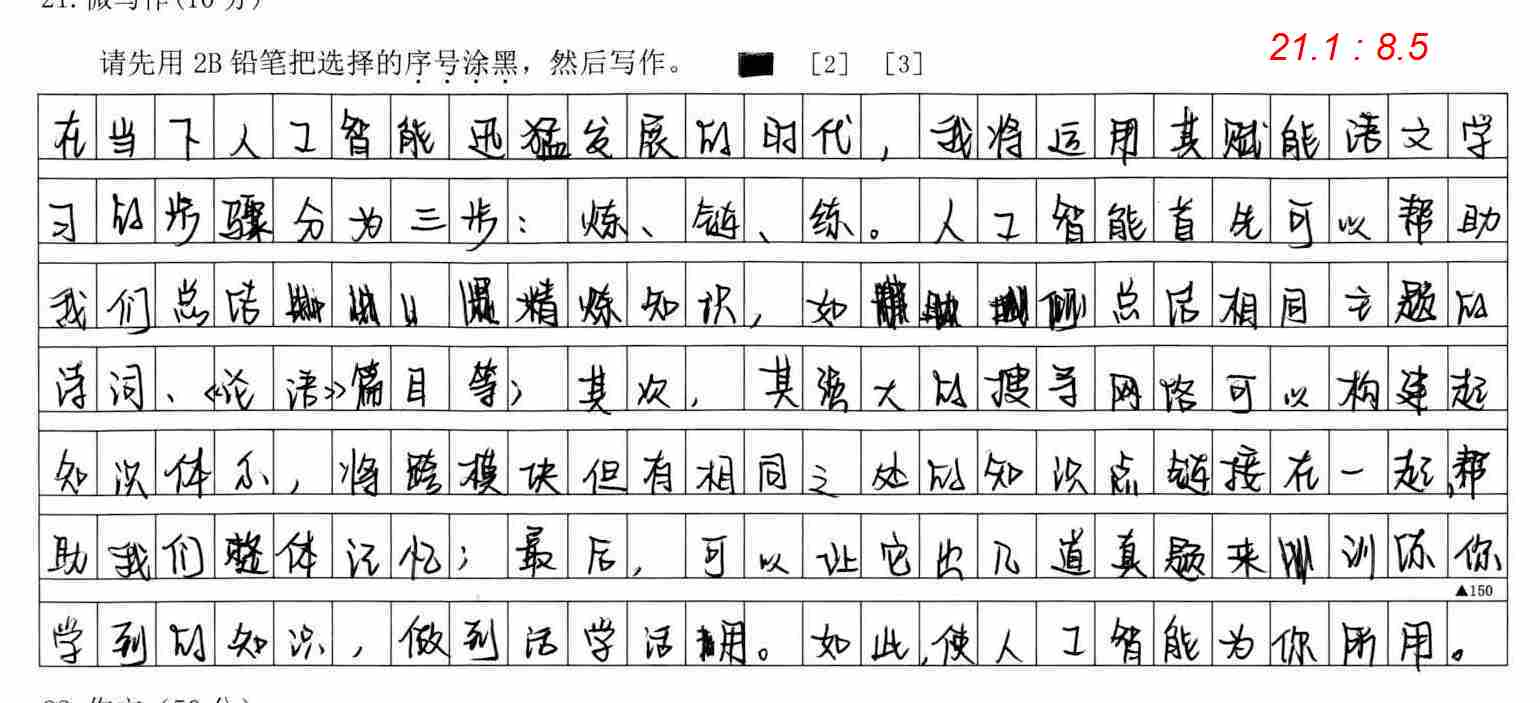 请先用 2B 铅笔把选择的序号涂黑，然后写作。 [2] [3]
21.1 : 8.5
在当下人工智能迅猛发展的时代，我将运用其赋能语文学
习的步骤分为三步：炼、链、练。人工智能首先可以帮助
我们总结精炼知识，如总结相同主题的
诗词、《论语》篇目等；其次，其强大的搜寻网络可以构建起
知识体系，将跨模块但有相同之处的知识点链接在一起，帮
助我们整体记忆；最后，可以让它出几道真题来训练你
▲150
学到的知识，做到活学活用。如此，使人工智能为你所用。